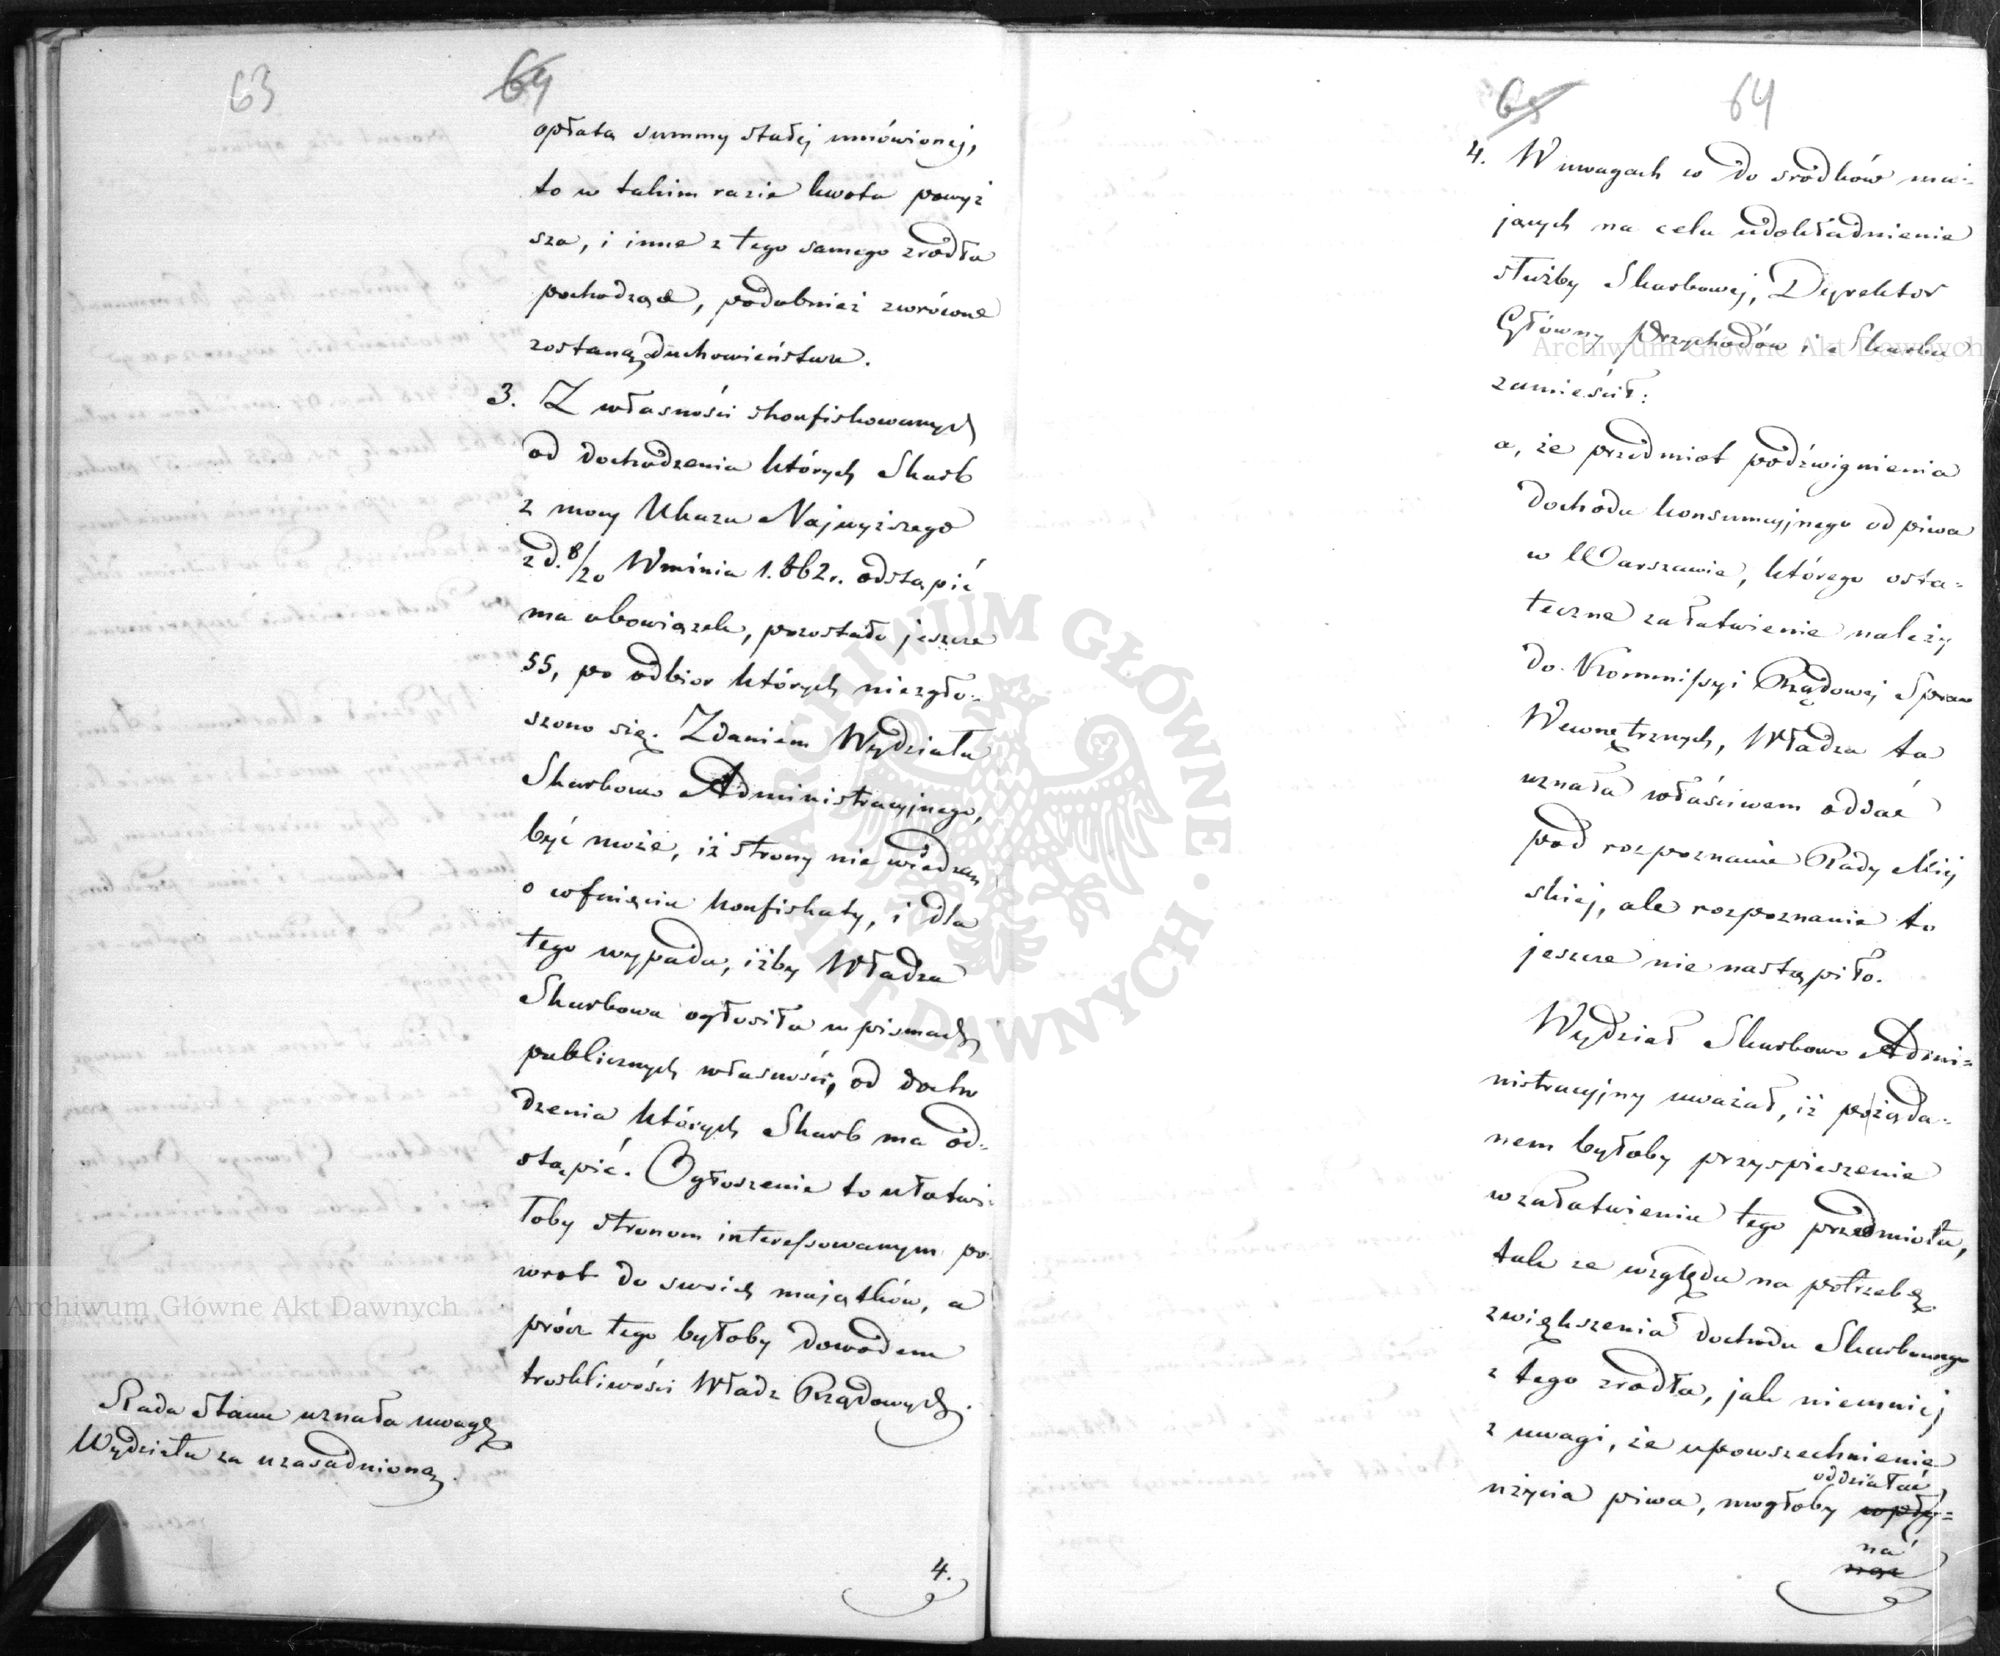 63
64
opłatą summy stałej umówionej,
to w takim razie kwota powyż
sza, i inne z tego samego zrodła
pochodzące, podobnież zwrócone
zostaną duchowieństwu.
3. Z własności skonfiskowanych
od dochodzenia których Skarb
z mocy Ukazu Najwyższego
z d. 8/20 Wrninia 1.862 r. odstąpić
ma obowiązek, pozostało jeszcze
55, po odbior których niezgło-
szono się. Zdaniem Wydziału
Skarbowo Administracyjnego,
być może, iż strony nie wiedzą
o cofnięciu konfiskaty, i dla
tego wypada, iżby Władza
Skarbowa ogłosiła w pismach
publicznych własności, od docho
dzenia których Skarb ma od-
stąpić. Ogłoszenie to ułatwi-
łoby stronom interessowanym po
wrot do swoich majątków, a
prócz tego byłoby dowodem
troskliwości Władz Rządowych.
Rada Stanu uznała uwagę
Wydziału za uzasadnioną.
4.
65
64
4. W uwagach co do srodków ma-
jących na celu udokładnienie
służby Skarbowej, Dyrektor
Główny Przychodów i Skarbu
zamieścił:
a, że przedmiot podźwignienia
dochodu konsumcyjnego od piwa
w Warszawie, którego osta-
teczne załatwienie należy
do Kommissyi Rządowej Spraw
Wewnętrznych, Władza ta
uznała właściwem oddać
pod rozpoznanie Rady Miej
skiej, ale rozpoznanie to
jeszcze nie nastąpiło.
Wydział Skarbowo Admi-
nistracyjny uważał, iż pożąda-
nem byłoby przyspieszenie
w załatwieniu tego przedmiotu,
tak ze względu na potrzebę
zwiększenia dochodu Skarbowego
z tego zrodła, jak niemniej
z uwagi, że upowszechnienie
użycia piwa, mogłoby wpły-
oddziałać
na
nąć
Archiwum Główne Akt Dawnych
Archiwum Główne Akt Dawnych
ARCHIWUM GŁÓWNE AKT DAWNYCH